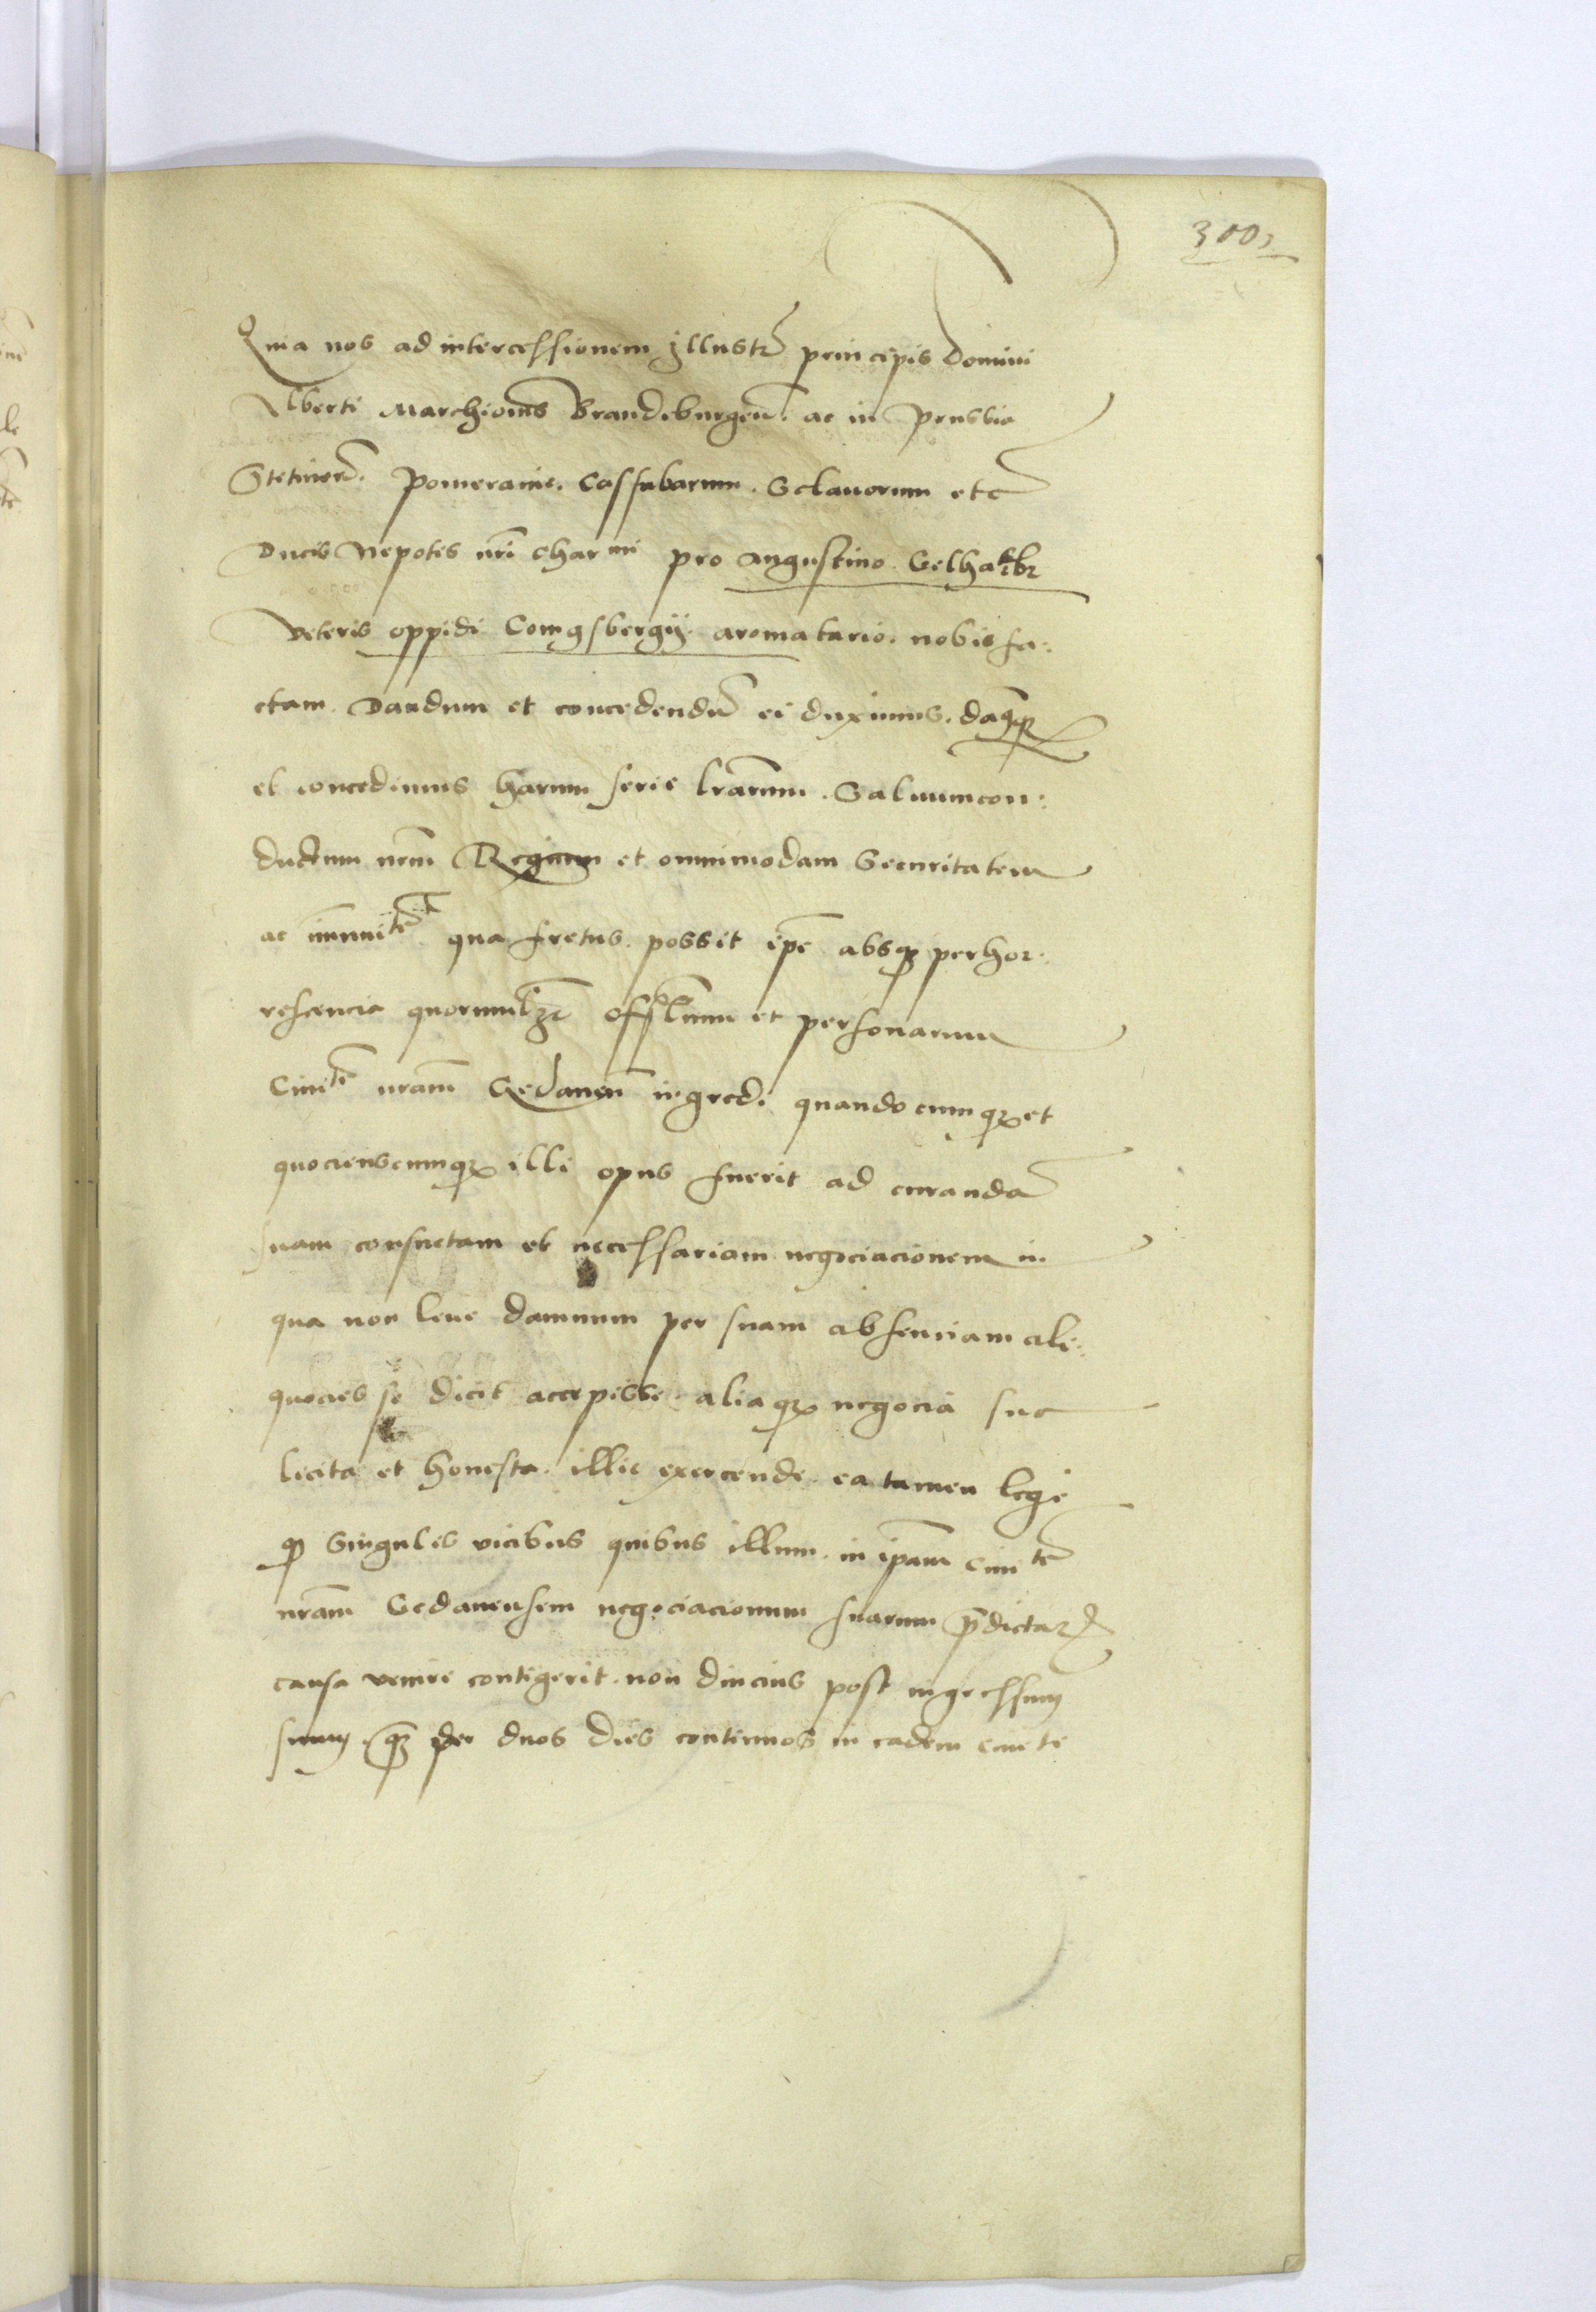 300
Quia nos ad intercessionem Illustr̃ principis Domini
Alberti Marchionis Brandeburgeñ. ac in Prussia
Stetineñ. Pomeranie. Cassubarum. Sclauorum etc̃
Ducis Nepotis nr̃i Char mi pro Augustino
veteris oppidi Comgsbergij. aromatario. nobis fa:
ctam Dandum et concedendũ ei duximus. damꝰqꝫ
et concedimus harum serie lr̃arum. Saluumcon:
ductum nr̃m Regium et omnimodam Securitatem
ac imunitẽ qua fretus. possit ip̃e absqꝫ perhor:
rescencia quorumlꝫ offilium et personarum
Ciuitẽ nr̃am Gedaneñ ingredi quandocumqꝫ et
quocienscumqꝫ illi opus fuerit ad curandã
suam consuetam et necessariam negociacionem in
qua non leue damnum per suam absenciam ali:
quocies se dicit accepisse. aliaqꝫ negocia sua
licita et honesta. illic exercende. ea tamen lege
qꝫ Singulis vicibus quibus illum in ip̃am ciuitẽ
nr̃am Gedanensem negociacionum suarum p̃dictarꝫ
causa venire contigerit. non diucius post ingressum
suum. qꝫ per duos dies continuos in eadem ciuite